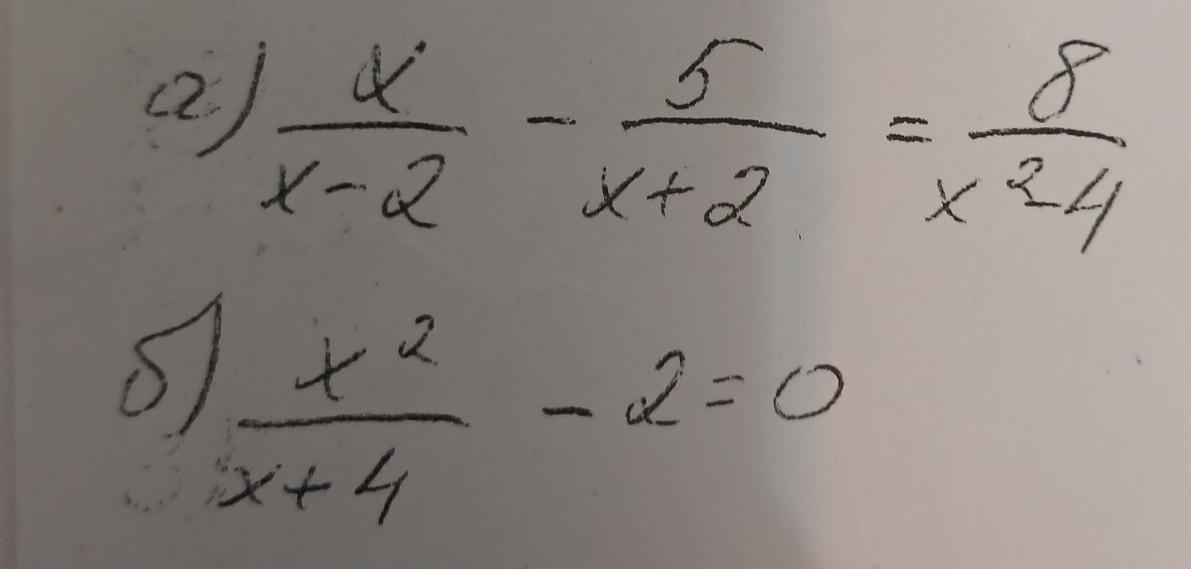 а) x/(x-2) - 5/(x+2) = 8/(x²-4)
б) x²/(x+4) - 2=0